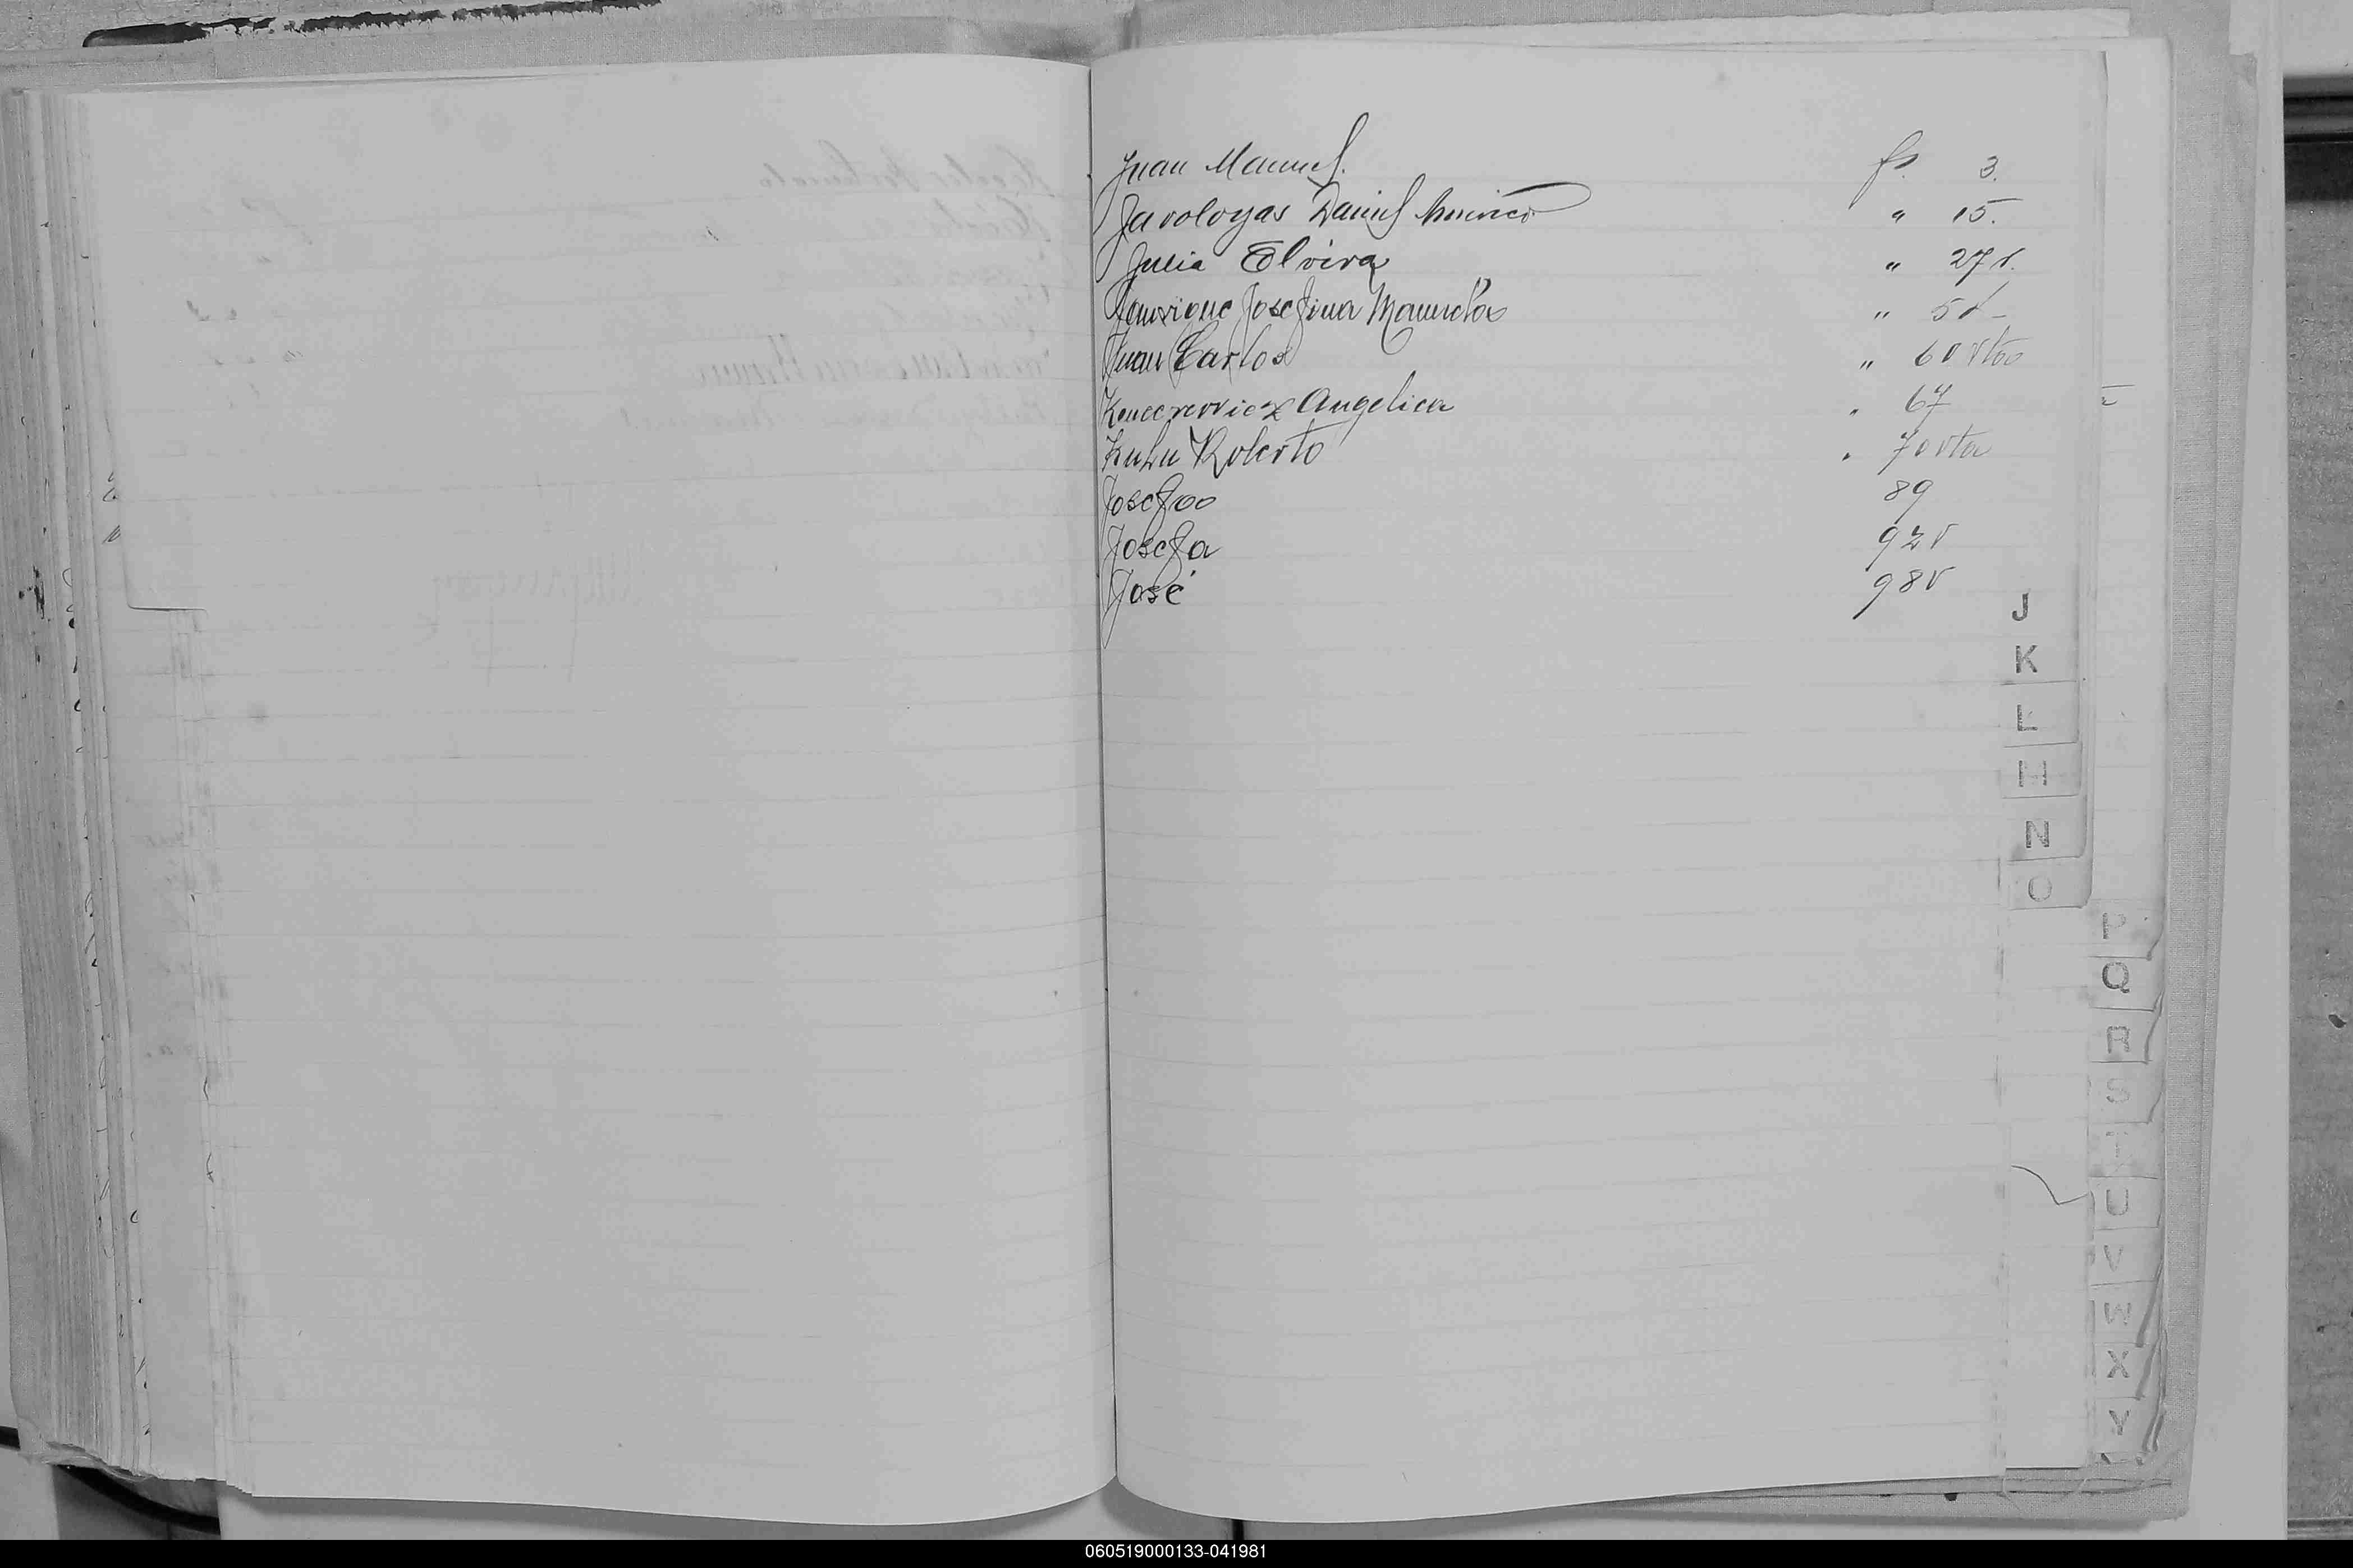 Juan Manuel. fs. 3.
Javoloyas Daniel Américo " 15.
Julia Elvira " 27 v.
Josefina Manuela " 5
Juan Carlos " 60 vta
Angelica " 67
Kuhn Roberto " 70 vta
Josefa 89
Josefa 92 v
José 98 v
J
K
L
M
N
O
P
Q
R
S
T
U
V
W
X
Y
060519000133-041981